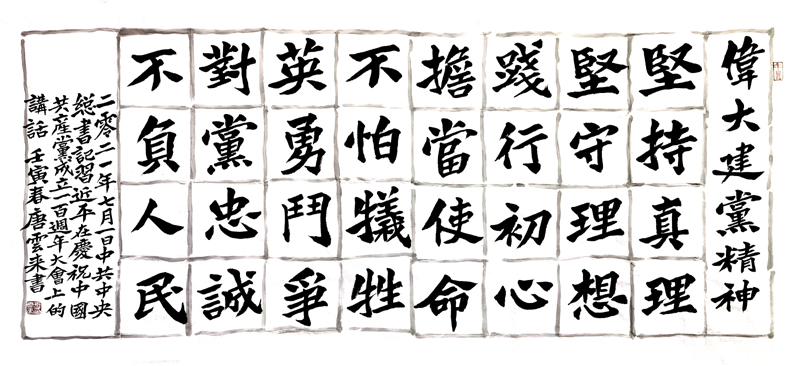 偉大建黨精神
堅持真理
堅守理想
踐行初心
擔當使命
不怕犧牲
英勇鬥爭
對黨忠誠
不負人民
二零二一年七月一日中共中央
總書記習近平在慶祝中國
共産黨成立一百週年大會上的
講話 壬寅春唐雲来書